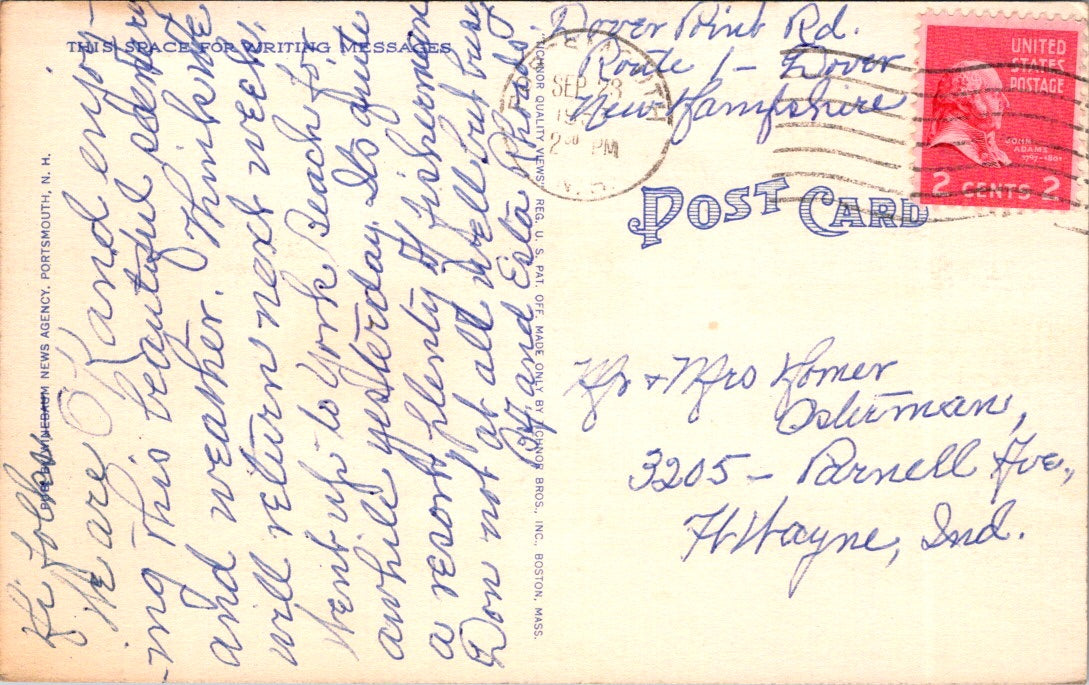 THIS SPACE FOR WRITING MESSAGES
Hi folks
We are O.K and enjoy-
-ing this beautiful scenery
and weather. Think we
will return next week.
Went up to York Beach for
awhile yesterday. Its quite
a resort, plenty of fishermen
Don not at all well but busy
and Esta Rhoads.
PUB. BY WINEBAUM NEWS AGENCY, PORTSMOUTH, N. H.
"TICHNOR QUALITY VIEWS," REG. U. S. PAT. OFF. MADE ONLY BY TICHNOR BROS., INC., BOSTON, MASS.
Dover Point Rd.
Route 1 - Dover
New Hampshire
SEP 23
2 PM
UNITED
STATES
POSTAGE
JOHN
ADAMS
1797-1801
2 CENTS 2
POST CARD
Mr + Mrs Homer
Osterman,
3205 - Parnell Ave.,
Ft Wayne, Ind.